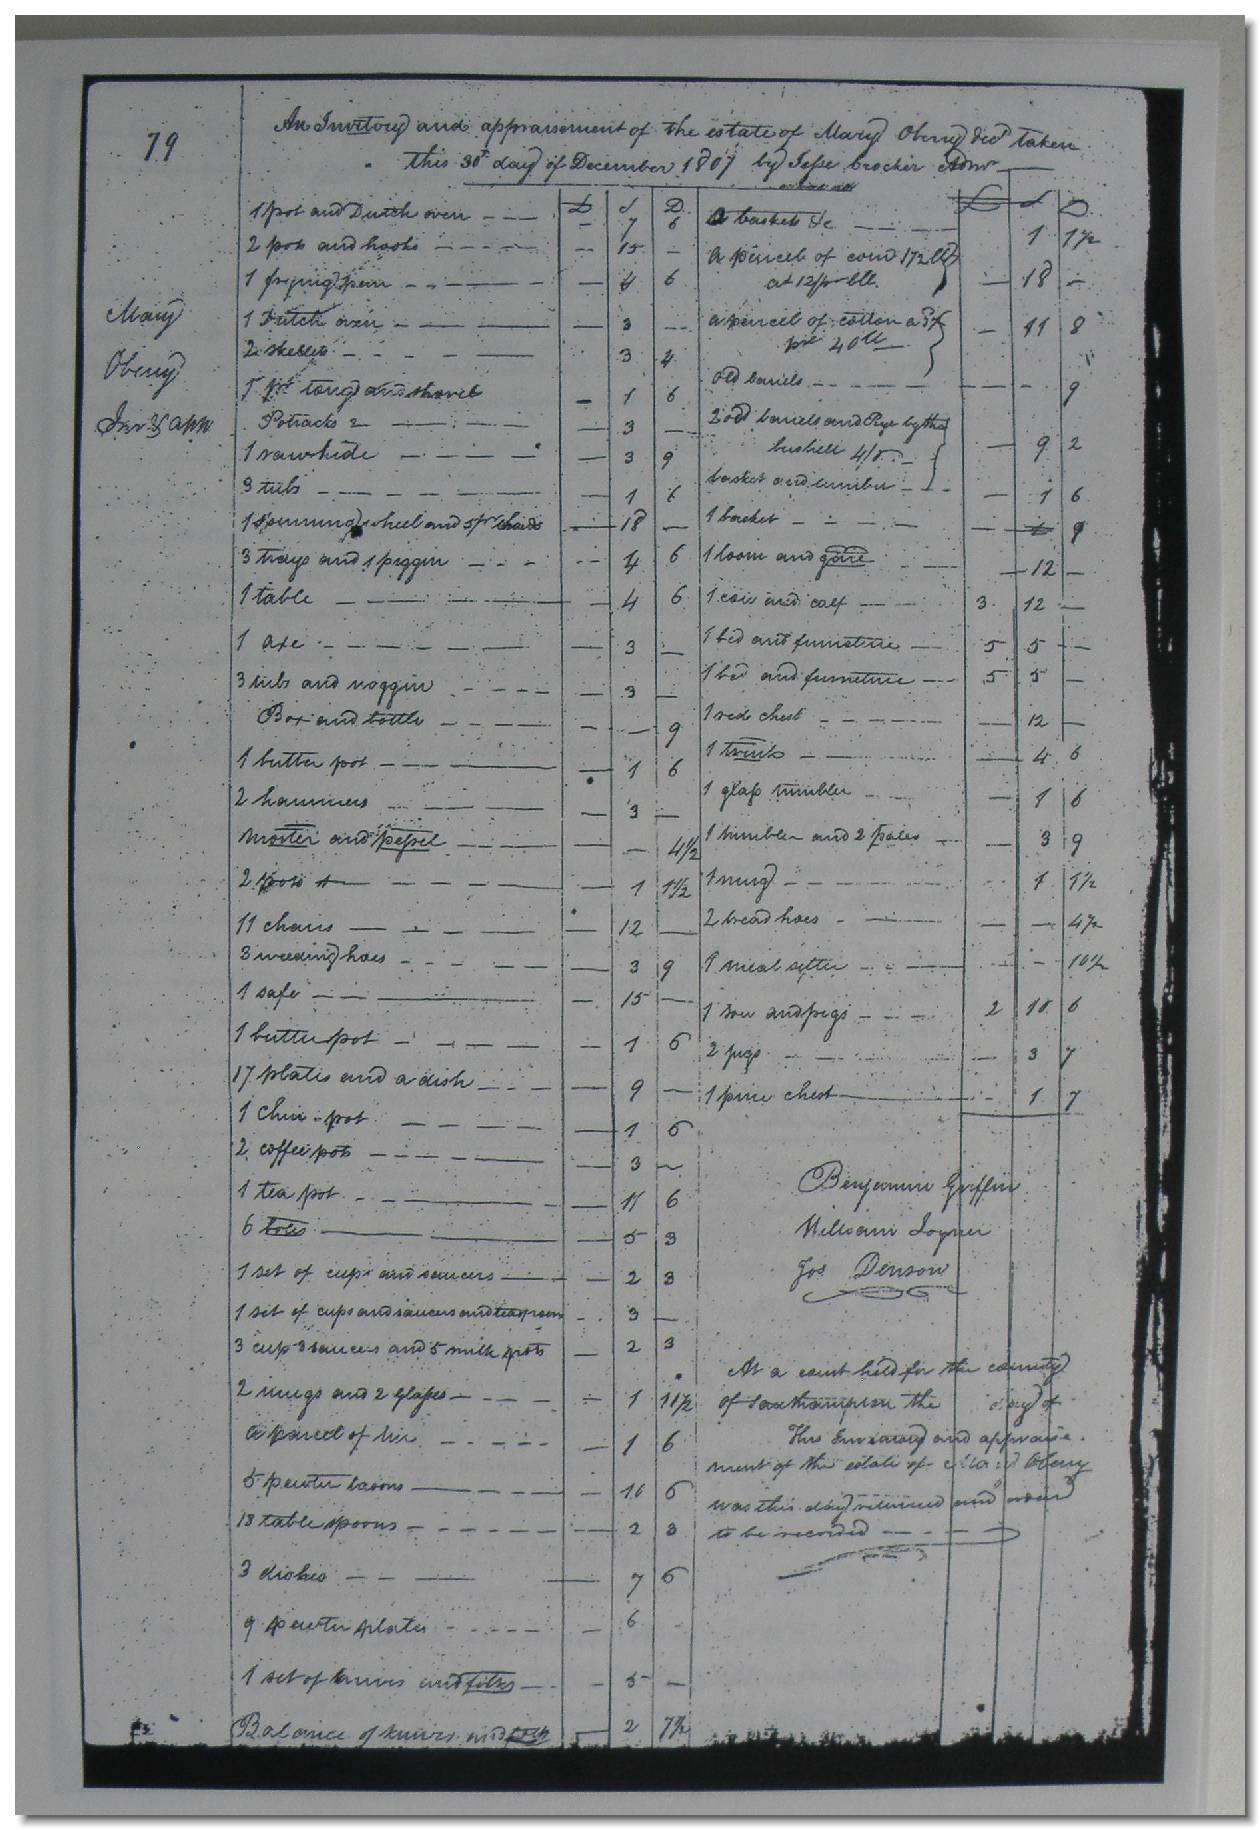 79
An Invitory and appraisement of the estate of Mary Obeny decd taken
this 30th day of December 1807 by Jesse Crocker Admr
Mary
Obeny
Inv & appr
£ S D
1 pot and Dutch oven - 7 6
2 pots and hooks - 15 -
1 frying pan - 4 6
1 Dutch oven - 3 -
2 skellets 3 4
1 pr tongs and shovel - 1 6
Potracks 2 - 3 -
1 rawhide - 3 9
3 tubs - 1 6
1 spinning wheel and 5 pr - 18 -
3 trays and 1 piggin - 4 6
1 table - 4 6
1 axe - 3 -
3 tubs and noggin - 3 -
Box and bottle - - 9
1 butter pot - 1 6
2 hammers - 3 -
Morter and pessel - - 4 1/2
2 pots - 1 1 1/2
11 chairs - 12 -
3 weeding hoes - 3 9
1 safe - 15 -
1 butter pot - 1 6
17 plates and a dish - 9 -
1 pot - 1 6
2 coffee pots - 3 -
1 tea pot - 11 6
6 - 5 3
1 set of cups and saucers - 2 3
1 set of cups and saucers and teaspoons - 3 -
3 cups 3 saucers and 5 milk pots - 2 3
2 mugs and 2 glasses - 1 11 1/2
a parcel of tin - 1 6
5 pewter basons - 10 6
18 table spoons - 2 3
3 dishes - 7 6
9 pewter plates - 6 -
1 set of knives and forks - 5 -
Balance of knives and forks - 2 7 1/2
£ S D
baskets &c 1 1 1/2
a parcel of corn 172 lb
at 12/ pr bbl. - 18 -
a parcel of cotton
40 lb - 11 8
old barrels - - 9
2 old barrels and Rye by the
bushell 4/ - 9 2
basket and - 1 6
1 basket - 9
1 loom and gare - 12 -
1 cow and calf 3 12 -
1 bed and furneture 5 5 -
1 bed and furneture 5 5 -
1 red chest - 12 -
1 trunk - 4 6
1 glass tumbler - 1 6
1 tumbler and 2 pales - 3 9
1 mug - 1 1 1/2
2 broad hoes - - 4 1/2
1 meal sifter - - 10 1/2
1 sow and pigs 2 10 6
2 jugs - 3 7
1 pine chest - 1 7
Benjamin Griffin
William Joyner
Jos Denson
At a court held for the county
of Southampton the day of
This Inventory and appraise-
ment of the estate of Mary Obeny
was this day returned and orderd
to be recorded